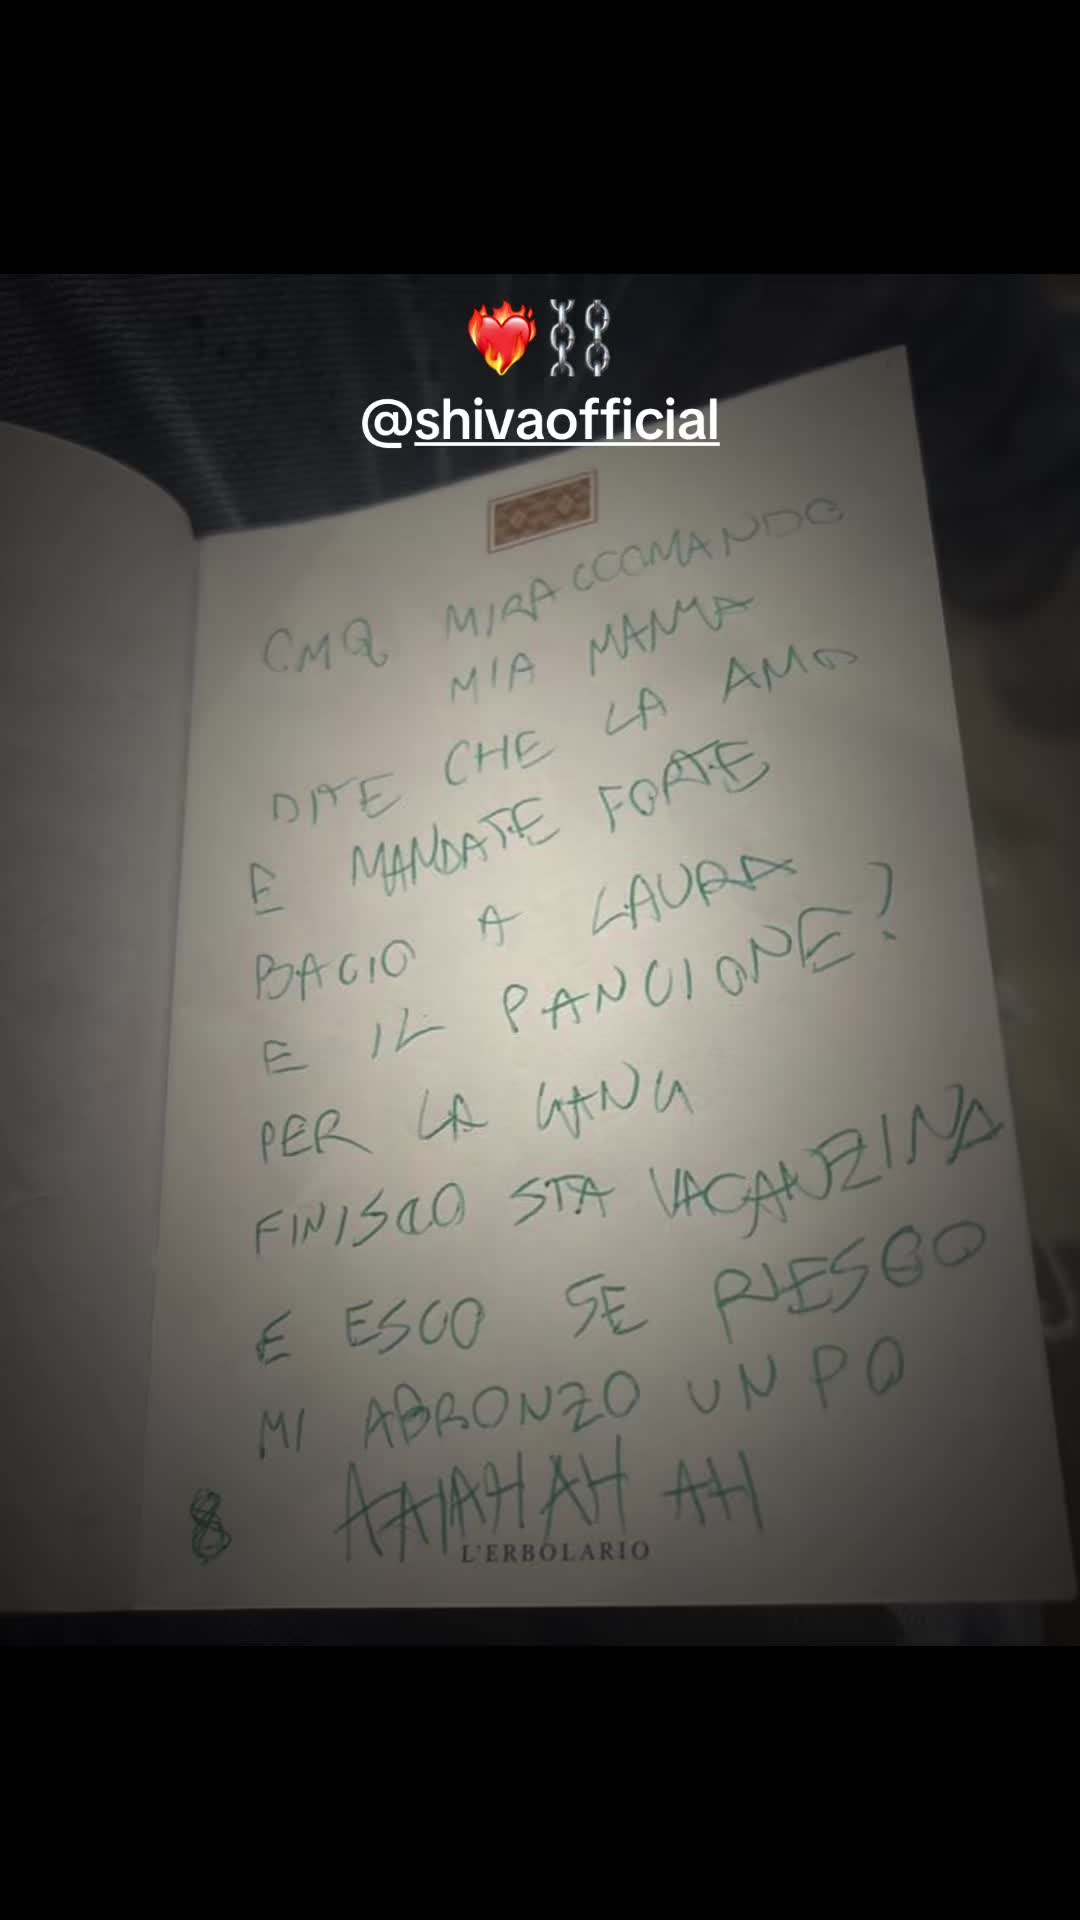 ❤️‍🔥⛓️⛓️
@shivaofficial
CMQ MIRACCOMANDO
MIA MAMMA
DITE CHE LA AMO
E MANDATE FORTE
BACIO A LAURA
E IL PANCIONE?
PER LA GANG
FINISCO STA VACANZINA
E ESCO SE RIESCO
MI ABRONZO UN PO
8 AAHAHAH AH
L'ERBOLARIO